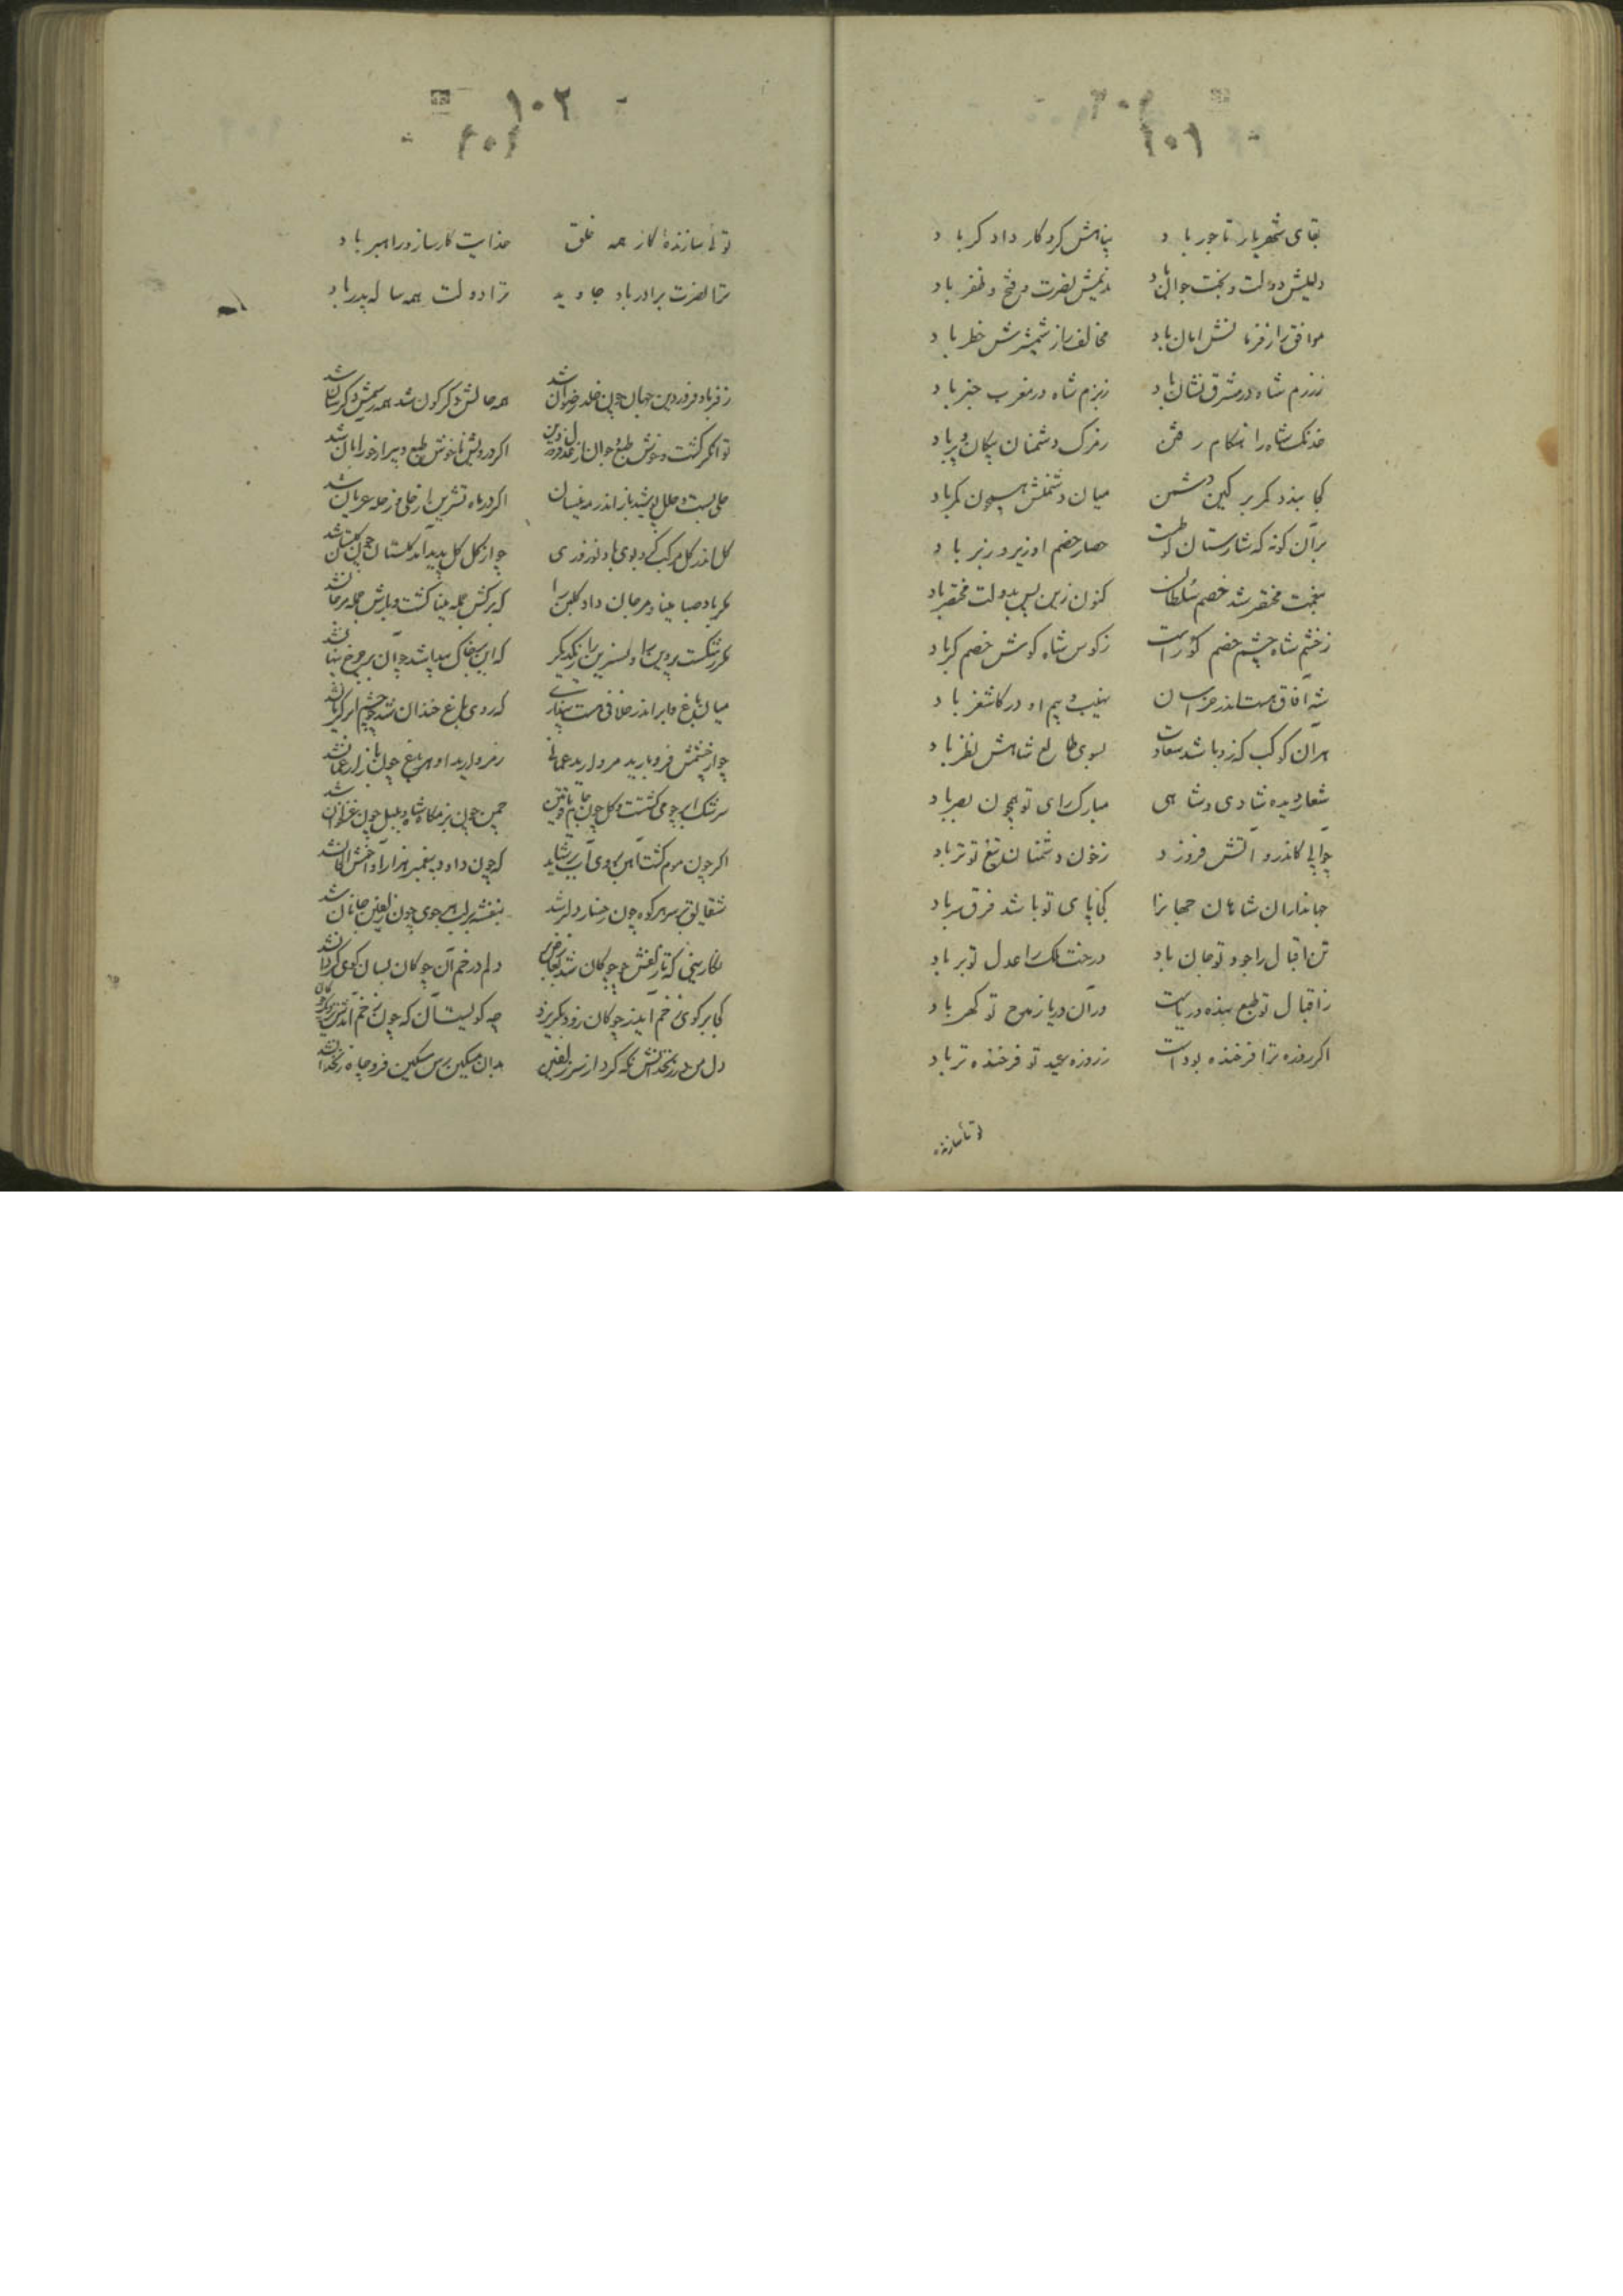 ۱۰۱
بقای شهریار تاجور باد پناهش کردکار دادکر باد
دلیلش دولت و بخت جوان باد ندیمش نصرت و فتح و ظفر باد
موافق را ز فرمانش امان باد مخالف را ز شمشیرش خطر باد
ز رزم شاه در مشرق نشان باد ز بزم شاه در مغرب خبر باد
خدنک شاه را هنکام رفتن ز مرک دشمنان پیکان و پر باد
کجا بندد کمر بر کین دشمن میان دشمنش همچون کمر باد
بر آن کونه که شارستان لوطست حصار خصم او زیر و زبر باد
ببخت مختصر شد خصم سلطان کنون زین پس بدولت مختصر باد
ز خشم شاه چشم خصم کور است ز کوس شاه کوش خصم کر باد
شه آفاق هست اندر خراسان نهیب و بیم او در کاشغر باد
هر آن کوکب کزو باشد سعادت بسوی طالع شاهش نظر باد
شعار دیده شادی و شاهی مبارک رای تو همچون بصر باد
چو آبی کاندرو آتش فروزد ز خون دشمنان تیغ تو تر باد
جهانداران شاهان جهانرا کجا پای تو باشد فرق سر باد
تن اقبال را جود تو جان باد درخت ملک را عدل تو بر باد
ز اقبال تو طبع بنده دریاست در آن دریا ز مدح تو کهر باد
اکر روزه ترا فرخنده بود است ز روزه عید تو فرخنده تر باد
تو تا سازنده
۱۰۲
تو تا سازندهٔ کار همه خلق خدایت کارساز و راهبر باد
ترا نصرت برادر باد جاوید ترا دولت همه ساله پدر باد
ز فر باد فروردین جهان چون خلد رضوان شد همه حالش دکرکون شد همه رسمش دکرسان شد
توانکر کشت و خوش طبع و جوان از عدل فروردین اکر درویش ناخوش طبع و پیر از جور آبان شد
حلی بست و حلل پوشید باز اندر مه نیسان اکر در ماه تشرین از حلی وز حله عریان شد
کل اندر کل مرکب کرد بوی باد نوروزی چو از کل کل پدید آمد کلستان چون کلستان شد
مکر باد صبا مینا و مرجان داد کلبن را که برکش جمله مینا کشت و بارش جمله مرجان شد
مکر رشکست پروین را و نسرین را ز یکدیکر که این بر خاک پیدا شد چو آن بر چرخ پنهان شد
میان باغ و ابر اندر خلافی هست پنداری که روی باغ خندان شد چو چشم ابر کریان شد
چو از چشمش فرو بارید مروارید عمانی ز مروارید او هر باغ چون بازار عمان شد
سرشک ابر چون می کشت و کل چون جام یاقوتین چمن چون بزمکاه شاه و بلبل چون غزلخوان شد
اکر چون موم کشت آهن بروی آب بر شاید که چون داود پیغمبر هزار آوا خوش الحان شد
شقایق بر سر هر کوه چون رخسار دلبر شد بنفشه بر لب هر جوی چون زلفین جانان شد
نکارینی که تا زلفش چو چوکان شد بعارض بر دلم در خم آن چوکان بسان کوی کردان شد
کجا بر کوی زخم آید ز چوکان زود بکریزد چه کویست آن که چون زخم آمدش نزدیک چوکان شد
دل من در زنخدانش نکه کرد از سر زلفین بدان مسکین رسن مسکین فرو چاه زنخدان شد